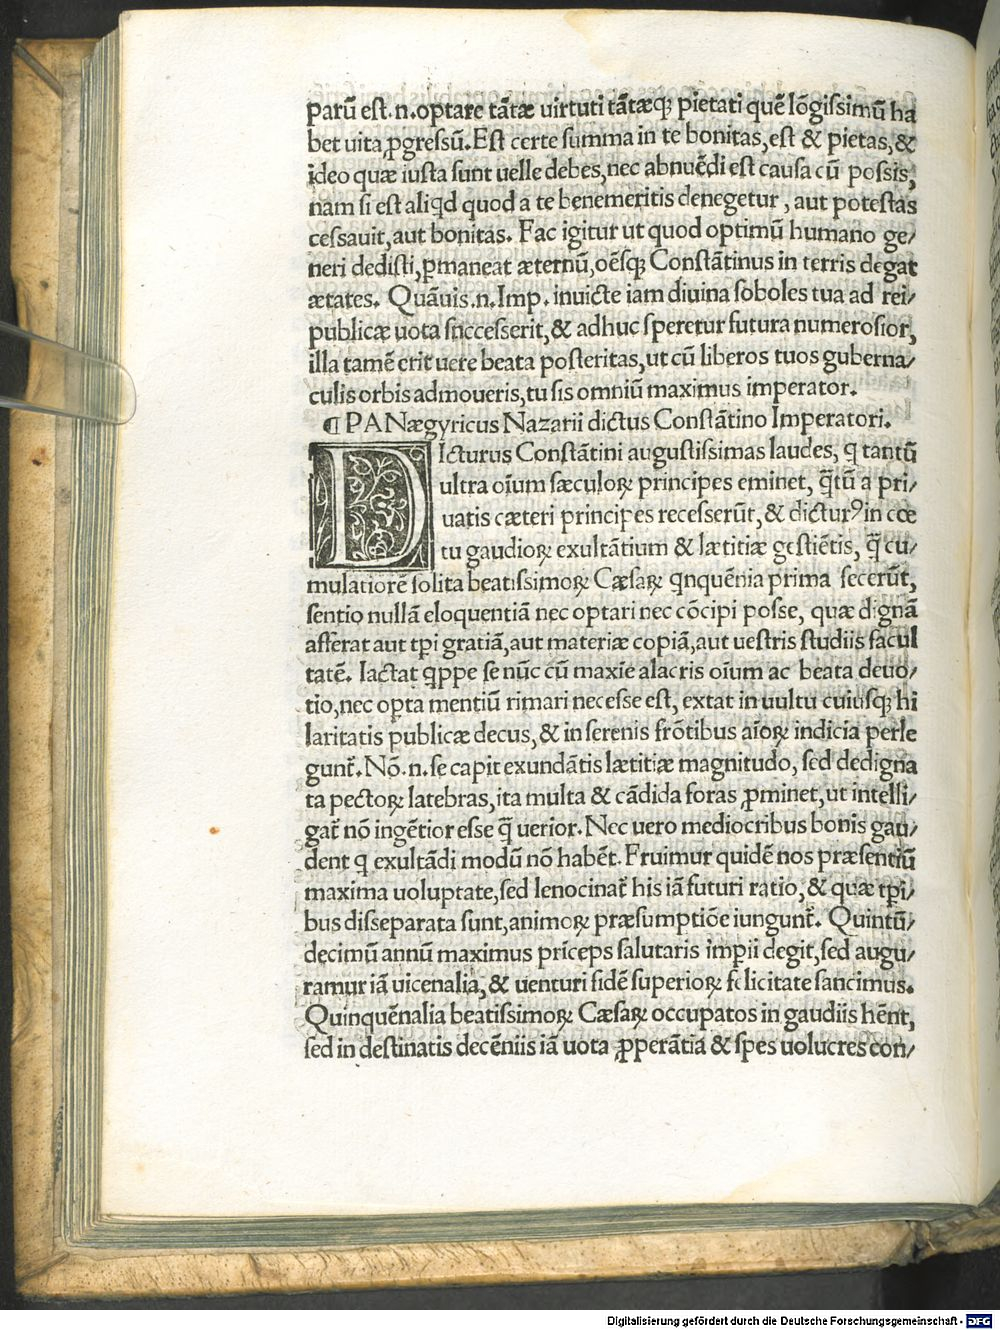 parū est.n.optare tātæ uirtuti tātæqꝫ pietati quē lōgissimū ha
bet uita ꝓgressū.Est certe summa in te bonitas,est & pietas,&
ideo quæ iusta sunt uelle debes,nec abnuēdi est causa cū possis,
nam si est aliqd quod a te benemeritis denegetur, aut potestas
cessauit,aut bonitas. Fac igitur ut quod optimū humano ge/
neri dedisti,ꝑmaneat æternū,oēsqꝫ Constātinus in terris degat
ætates. Quāuis.n.Imp. inuicte iam diuina soboles tua ad rei/
publicæ uota successerit,& adhuc speretur futura numerosior,
illa tamē erit uere beata posteritas,ut cū liberos tuos guberna/
culis orbis admoueris,tu sis omniū maximus imperator.
¶ PANægyricus Nazarii dictus Constātino Imperatori.
DIcturus Constātini augustissimas laudes, q̄ tantū
ultra oīum sæculoꝝ principes eminet, q̄tū a pri/
uatis cæteri principes recesserūt,& dicturꝰ in cœ
tu gaudioꝝ exultātium & lætitiæ gestiētis, q̄ cu/
mulatiorē solita beatissimoꝝ Cæsaꝝ qnquēnia prima fecerūt,
sentio nullā eloquentiā nec optari nec cōcipi posse, quæ dignā
afferat aut tꝑi gratiā,aut materiæ copiā,aut uestris studiis facul
tatē. Iactat qppe se nūc cū maxīe alacris oīum ac beata deuo/
tio,nec opta mentiū rimari necesse est, extat in uultu cuiusqꝫ hi
laritatis publicæ decus,& in serenis frōtibus aīoꝝ indicia perle
gunt̄. Nō.n.se capit exundātis lætitiæ magnitudo, sed dedigna
ta pectoꝝ latebras,ita multa & cādida foras ꝓminet,ut intelli/
gat̄ nō ingētior esse q̄ uerior. Nec uero mediocribus bonis gau/
dent q exultādi modū nō habēt. Fruimur quidē nos præsentiū
maxima uoluptate,sed lenocinat̄ his iā futuri ratio,& quæ tꝑi/
bus disseparata sunt,animoꝝ præsumptiōe iungunt̄. Quintū/
decimū annū maximus prīceps salutaris impii degit,sed augu/
ramur iā uicenalia,& uenturi fidē superioꝝ felicitate sancimus.
Quinquēnalia beatissimoꝝ Cæsaꝝ occupatos in gaudiis hēnt,
sed in destinatis decēniis iā uota ꝓperātia & spes uolucres con/
Digitalisierung gefördert durch die Deutsche Forschungsgemeinschaft - DFG